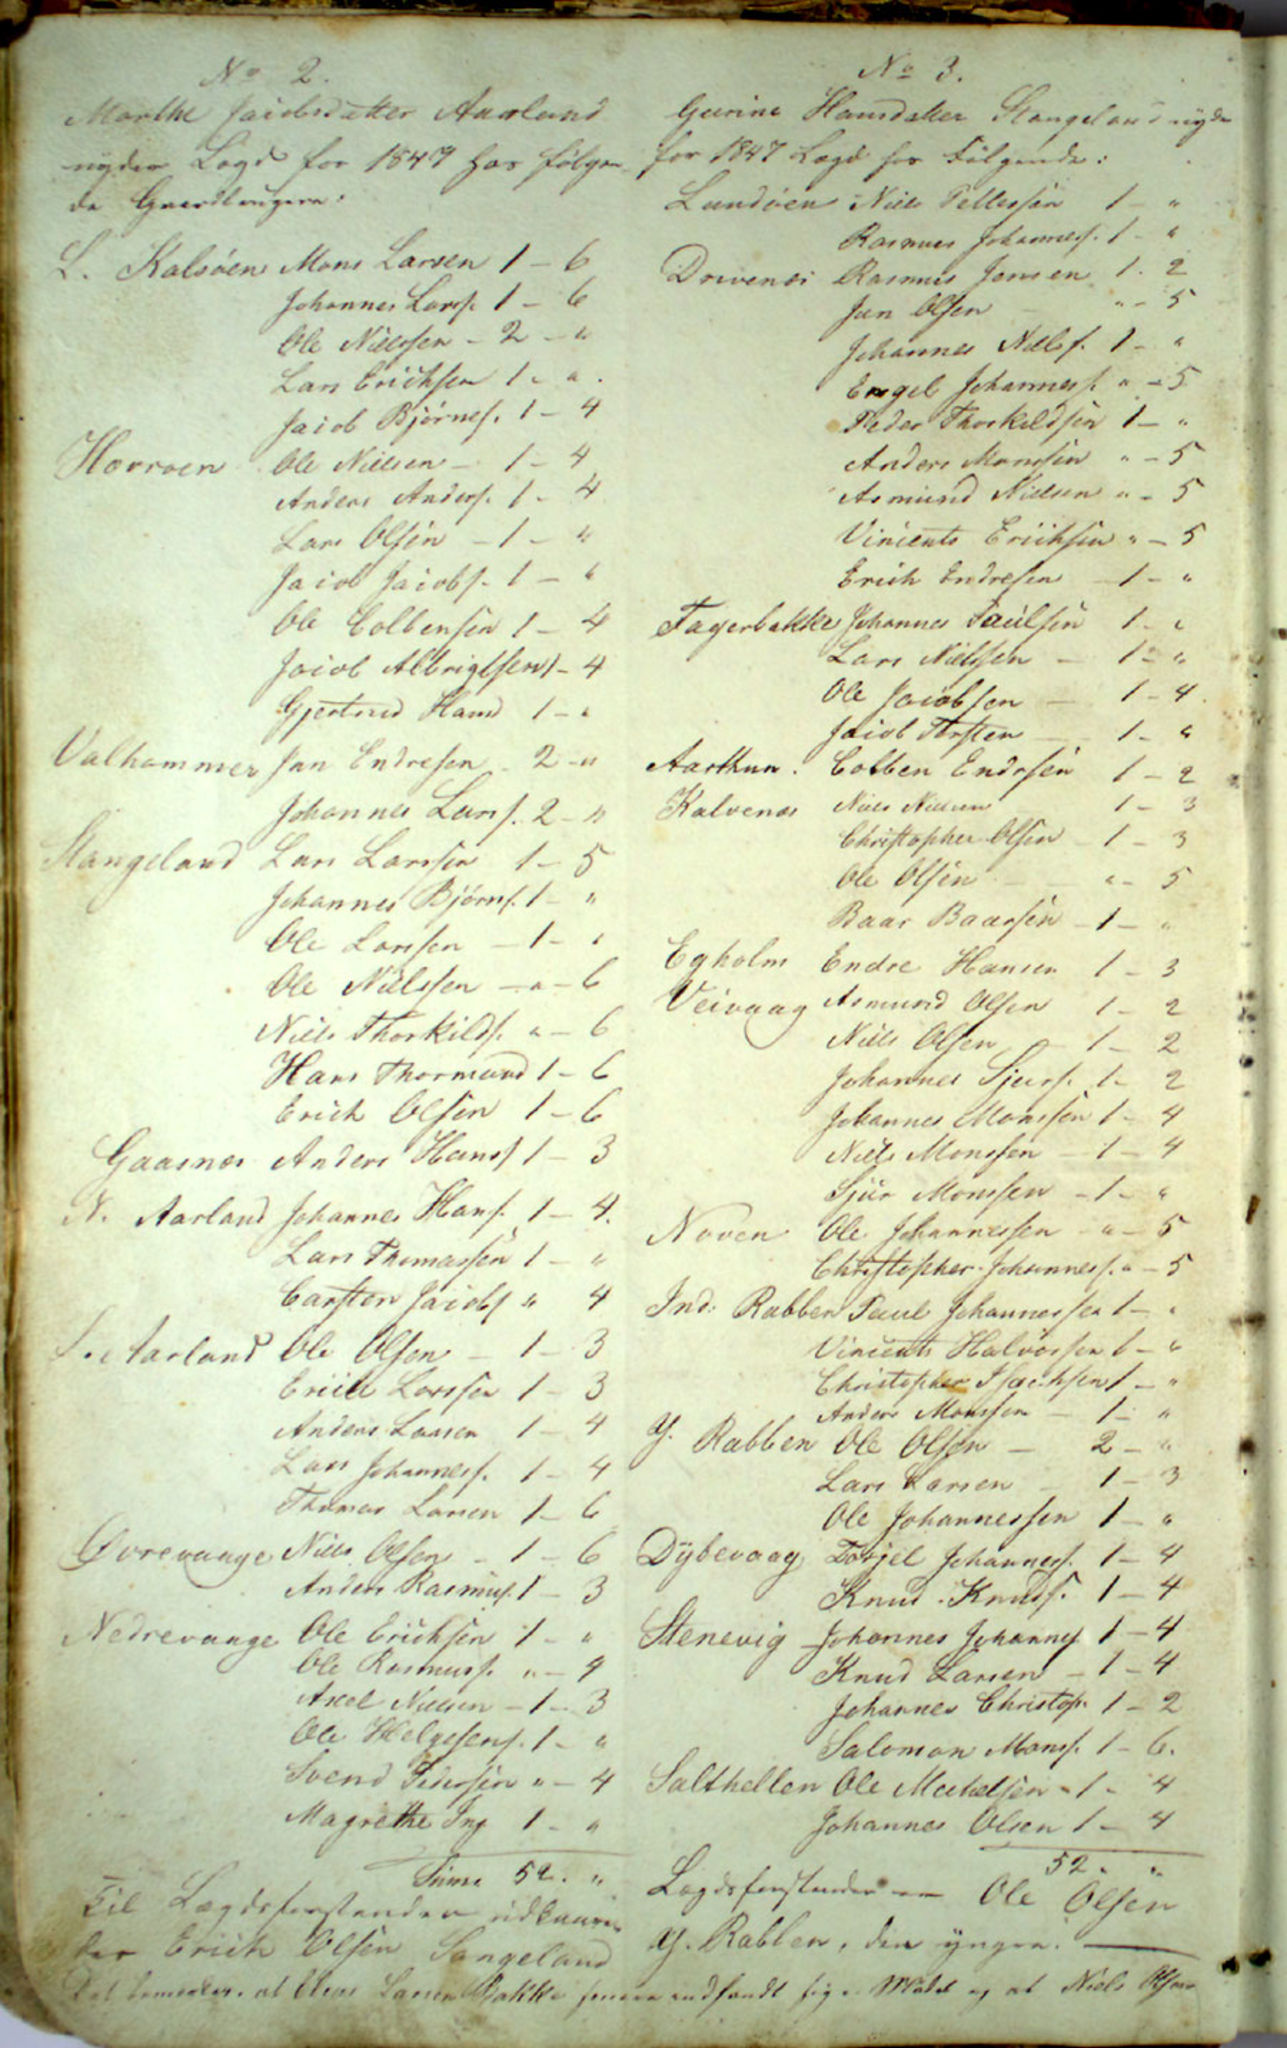 No 2.
Marthe Jacobsdatter Aarland
nyder Lægd for 1847 hos følgen-
de Gaardbrugere:
L. Kalsøen Mons Larsen 1 - 6
Johannes Larss. 1 - 6
Ole Nielssen - 2 - "
Lars Erichsen 1 - "
Jacob Bjørness. 1 - 4
Hovroen Ole Nielsen - 1 - 4
Anders Anderss. 1 - 4
Lars Olsen - 1 - "
Jacob Jacobs. 1 - "
Ole Colbensen 1 - 4
Jacob Albrigtsen 1 - 4
Gjertrud Hansd 1 - "
Valhammer Jan Endresen - 2 - "
Johannes Larss. 2 - "
Stangeland Lars Larssen 1 - 5
Johannes Bjørns. 1 - "
Ole Larssen - 1 - "
Ole Nielssen - " - 6
Niels Thorkilds. " - 6
Hans Thormund 1 - 6
Erich Olsen 1 - 6
Gaasnes Anders Hanss 1 - 3
N. Aarland Johannes Hans. 1 - 4.
Lars Thomassen 1 - "
Carsten Jacobs " 4
S. Aarland Ole Olsen - 1 - 3
Erich Larssen 1 - 3
Anders Larsen 1 - 4
Lars Johanness. 1 - 4
Thomas Larsen 1 - 6
Øvrevaage Niels Olsen - 1 - 6
Anders Rasmuss. 1 - 3
Nedrevaage Ole Erichsen 1 - "
Ole Rasmuss. " - 4
Axel Nielsen - 1 - 3
Ole Helgesens. 1 - "
Svend Pedersen " - 4
Magrethe Ing 1 - "
Suma 52. "
Til Lægdsforstander udnævnes
Erich Olsen Sangeland
No 3.
Gurine Hansdatter Stangeland nyder
for 1847 Lægd hos Følgende:
Lundøen Niels Pettersen 1 - "
Rasmus Johanness. 1 - "
Drivenæs Rasmus Jansen 1. 2
Jan Olsen " - 5
Johannes Niels s. 1 - "
Engel Johanness. " - 5
Peder Thorkildsen 1 - "
Anders Monssen " - 5
Asmund Nielsen " - 5
Vincents Erichsen " - 5
Erich Endresen 1 - "
Fagerbakke Johannes Paulsen 1 - "
Lars Nielssen - 1 - "
Ole Jacobsen - 1 - 4
Jacob Torsten - 1 - "
Aarthun. Colben Endrsen 1 - 2
Kalvenæs Niels Nielsen 1 - 3
Christopher Olsen - 1 - 3
Ole Olsen - " - 5
Baar Baarsen - 1 - "
Egholm Endre Hansen 1 - 3
Veivaag Asmund Olsen 1 - 2
Niels Olsen - 1 - 2
Johannes Sjurs. 1 - 2
Johannes Monssen 1 - 4
Niels Monssen - 1 - 4
Sjur Monssen - 1 - "
Noven Ole Johannessen - " - 5
Christopher Johanness. " - 5
Ind. Rabben Paul Johannessen 1 - "
Vincents Halvorsen 1 - "
Christopher Isachsen 1 - "
Anders Monssen - 1 - "
Y. Rabben Ole Olsen - 2 - "
Lars Larsen - 1 - 3
Ole Johannessen 1 - "
Dybevaag Torjel Johanness. 1 - 4
Knud Knuds. 1 - 4
Stenevig Johannes Johanness. 1 - 4
Knud Larsen - 1 - 4
Johannes Christop. 1 - 2
Salomon Monss. 1 - 6.
Salthellen Ole Michelsen - 1 - 4
Johannes Olsen 1 - 4
52. "
Lægdsforstander Ole Olsen
Y. Rabben, den yngre.
Det bemærkes, at Larsen Bakke senere indfandt sig i Mødet og at Niels Olsen